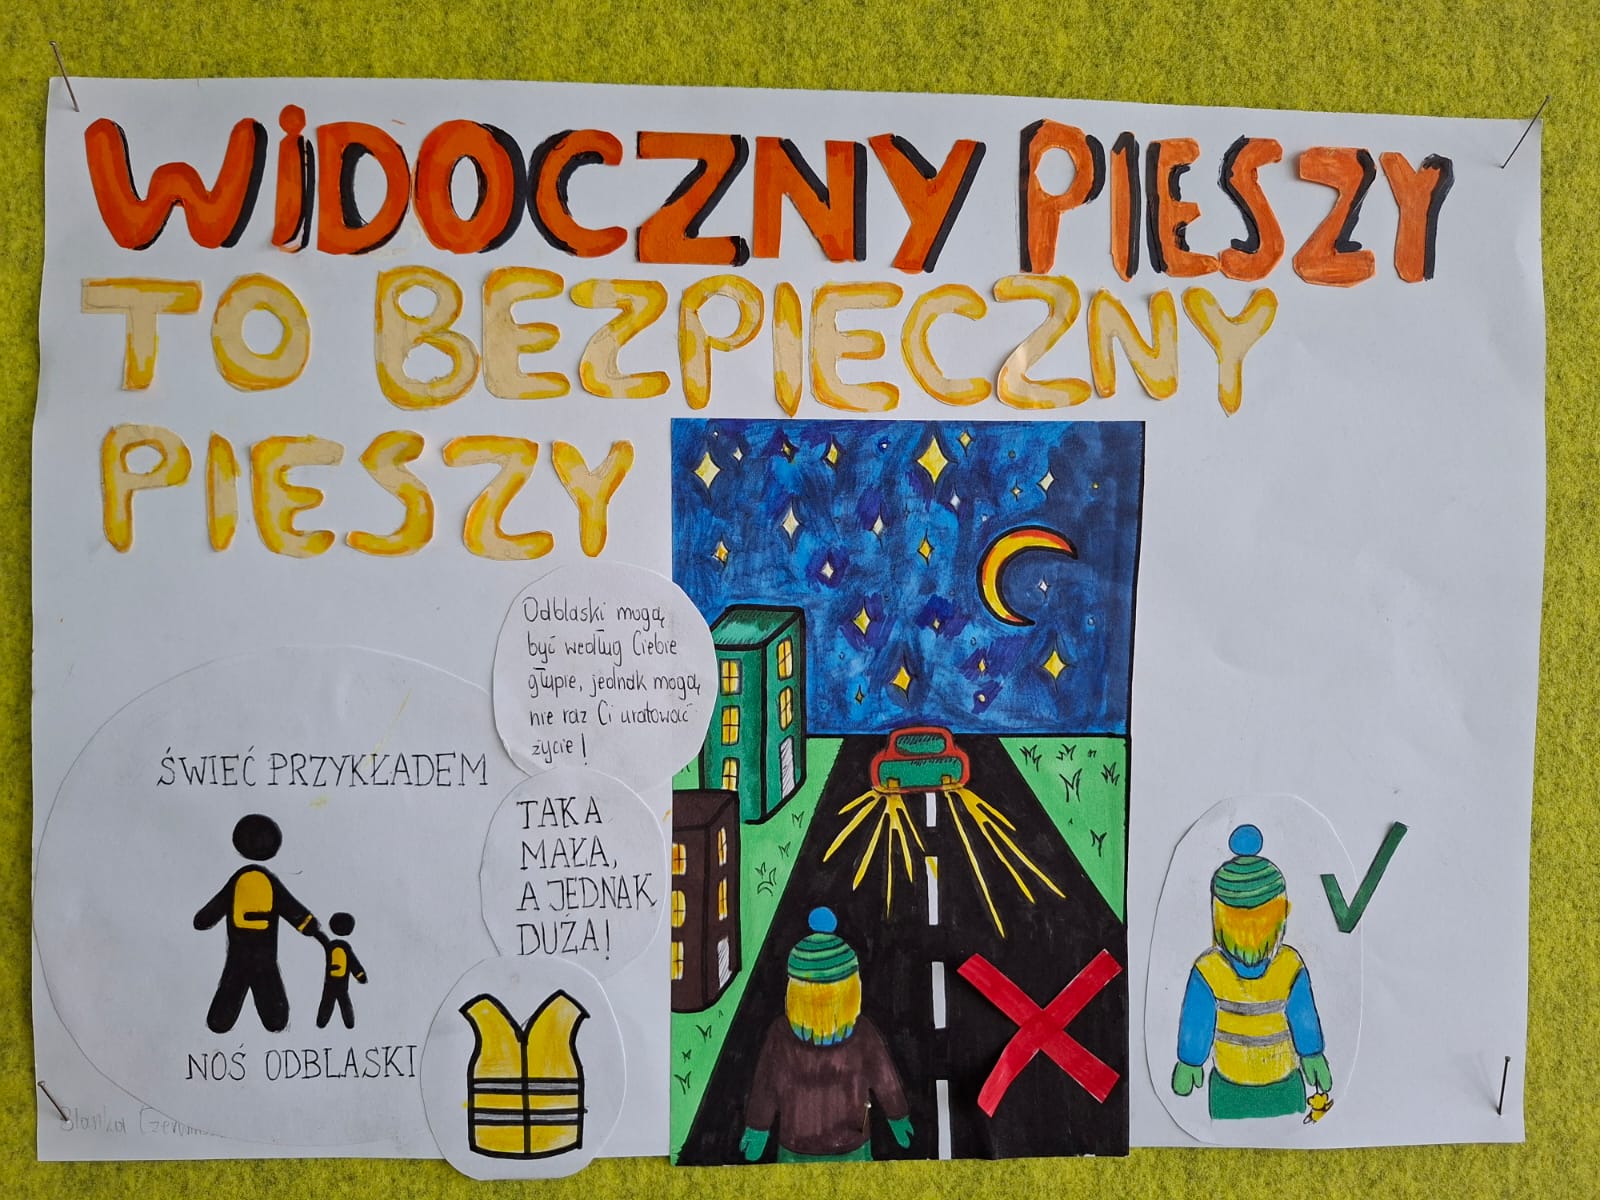 WiDOCZNY PIESZY
TO BEZPIECZNY
PIESZY
Odblaski mogą
być według Ciebie
głupie, jednak mogą
nie raz Ci uratować
życie!
ŚWIEĆ PRZYKŁADEM
NOŚ ODBLASKI
TAKA
MAŁA,
A JEDNAK
DUŻA!
Blanka